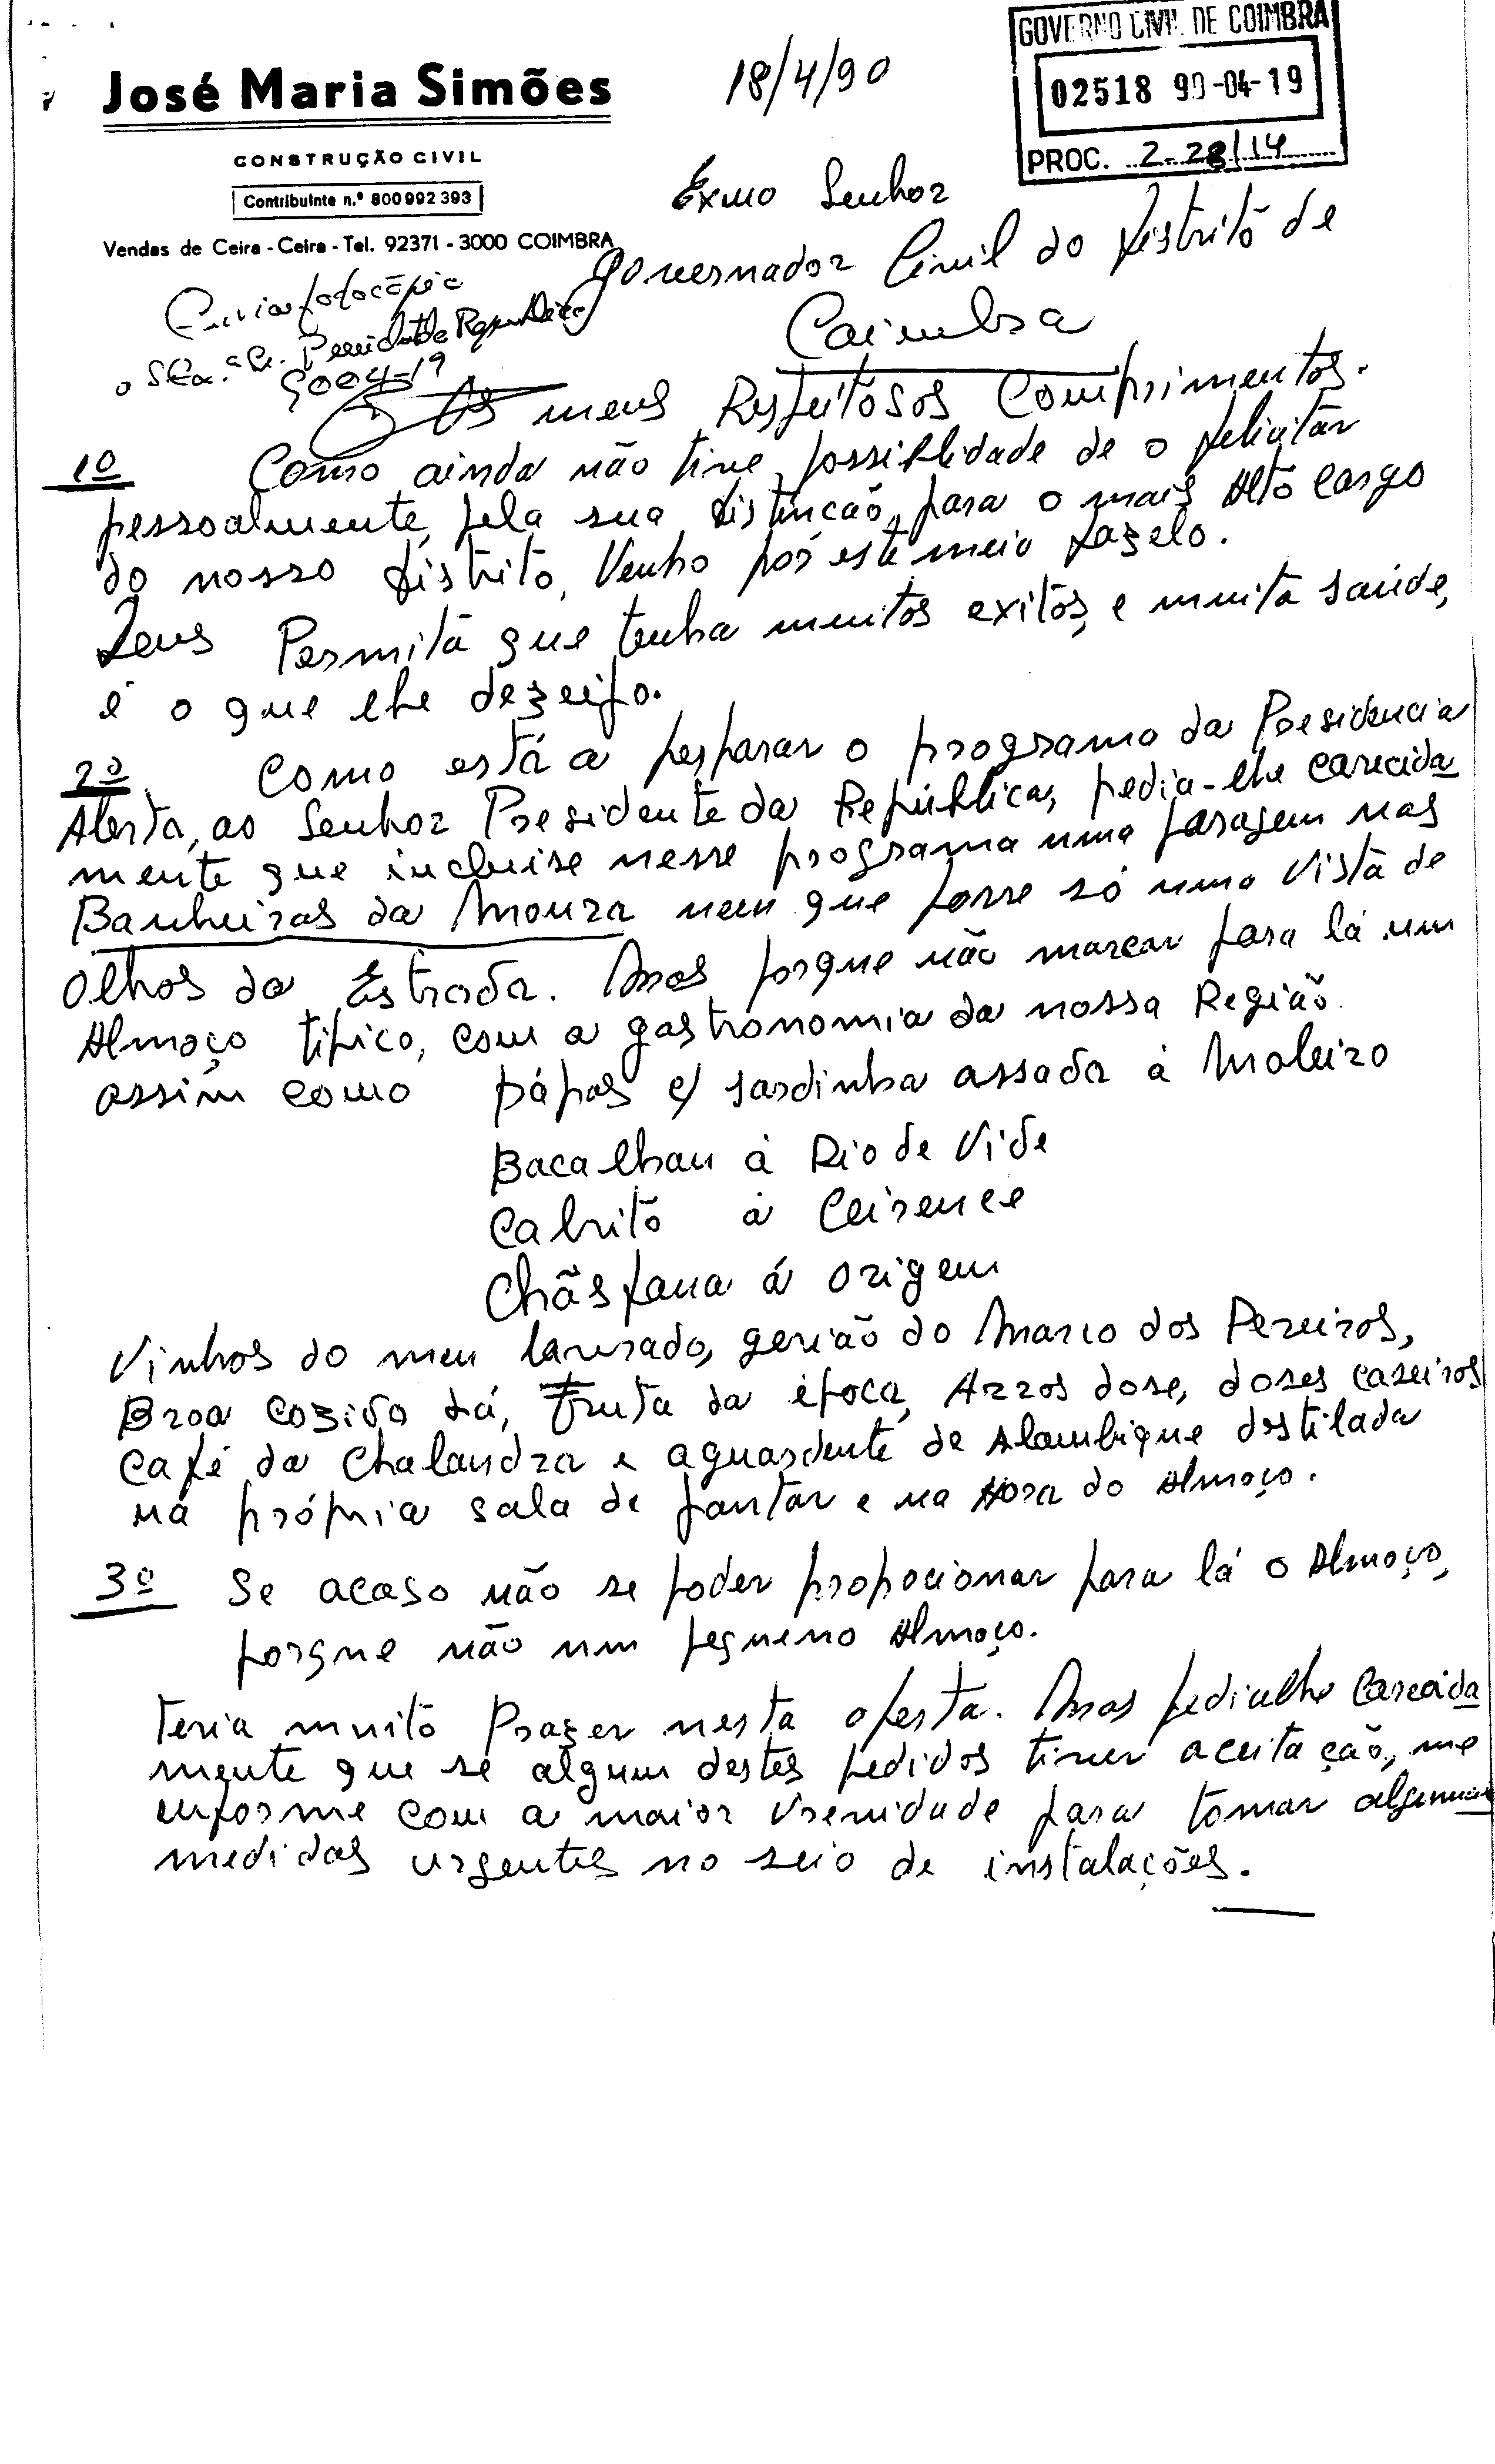 José Maria Simões
CONSTRUÇÃO CIVIL
Contribuinte n.º 800992393
Vendas de Ceira - Ceira - Tel. 92371 - 3000 COIMBRA
18/4/90
GOVERNO CIVIL DE COIMBRA
02518 90-04-19
PROC. 2-28/14
Exmo Senhor
Governador Civil do Distrito de
Coimbra
Enviar fotocópia
a S Exa. º Sr. Presidente da República
900419
Os meus Respeitosos Comprimentos.
1º Como ainda não tive, possiblidade de o felicitar
pessoalmente, pela sua distincão, para o mais Alto cargo
do nosso distrito, Venho por este meio fazelo.
Deus Permita que tenha muitos exitos, e muita saúde,
é o que lhe dezeijo.
2º Como está a perparar o programa da Presidencia
Aberta, ao Senhor Presidente da República, pedia-lhe carecida
mente que incluise nesse programa uma paragem nas
Banheiras da Moura nem que fosse só uma Vista de
olhos da Estrada. Mas porque não marcar para lá um
Almoço tipico, com a gastronomia da nossa Região.
assim como pápas c/ sardinha assada à Moleiro
Bacalhau à Rio de Vide
Cabrito à Ceirence
Chãsfana á origem
Vinhos do meu lavrado, gerião do Marco dos Pereiros,
Broa cozida lá, Fruta da época, Arros dose, doses caseiros
Café da Chalandra e aguardente de Alambique destilada
na própria sala de jantar e na Hora do Almoço.
3º Se acaso não se poder propocionar para lá o Almoço,
porque não um pequeno Almoço.
Teria muito Prazer nesta oferta. Mas pedialhe Carecida
mente que se algum destes pedidos tiver aceitação, me
informe com a maior Vrenidade para tomar algumas
medidas urgentes no seio de instalações.